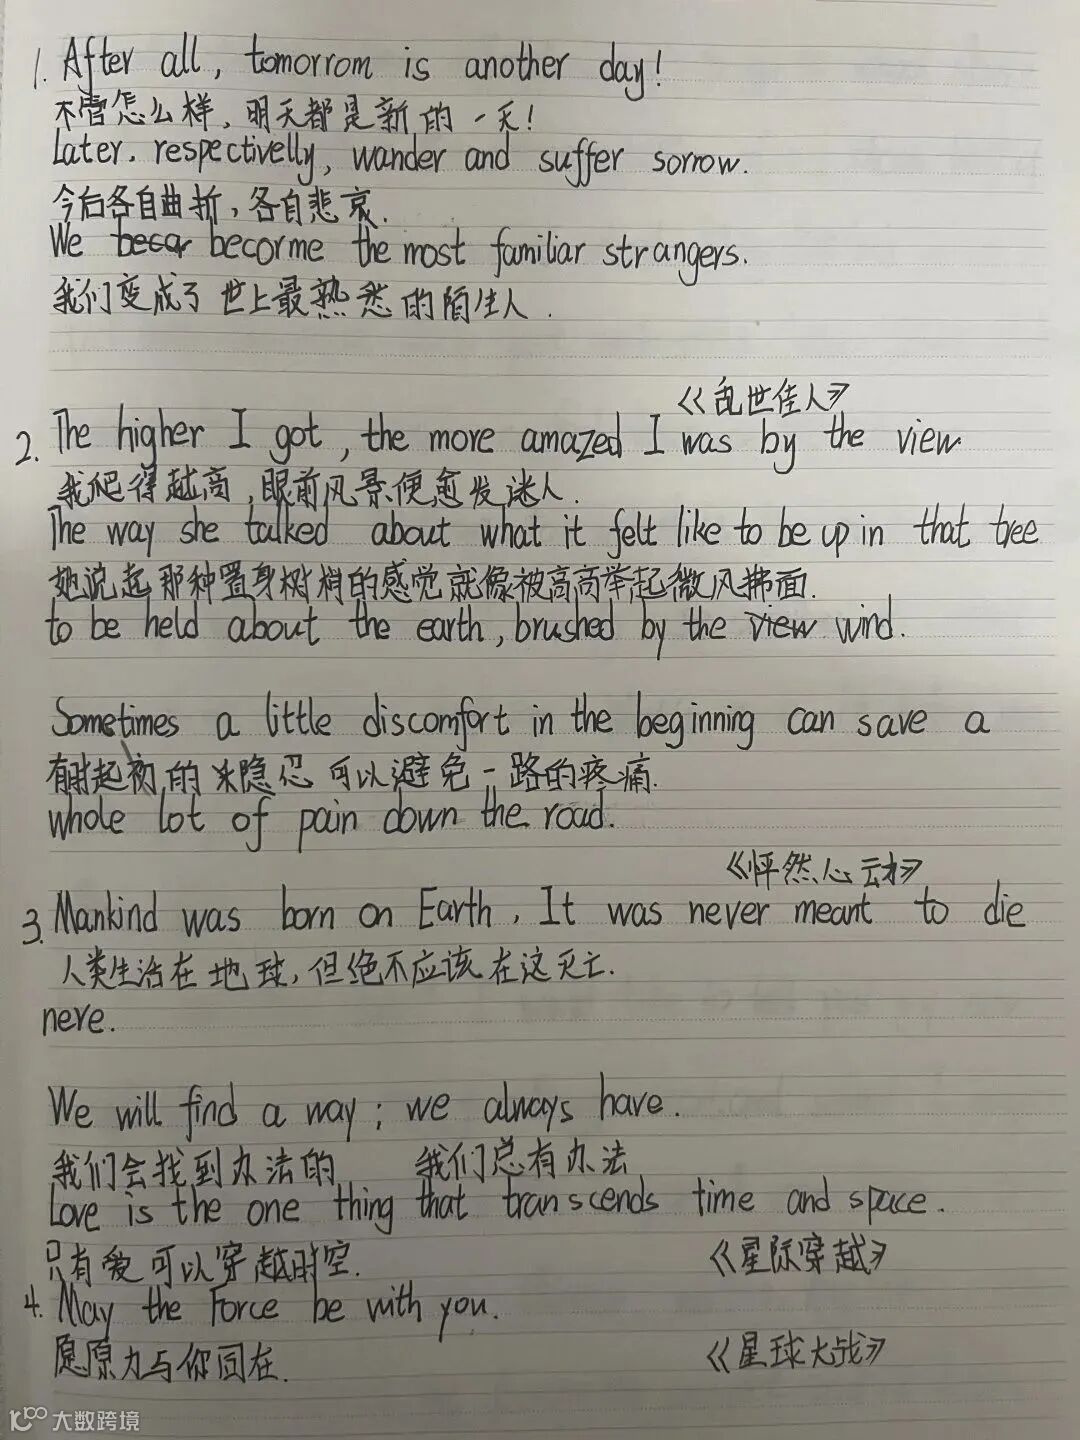 1. After all, tomorrom is another day!
不管怎么样，明天都是新的一天！
Later. respectivelly, wander and suffer sorrow.
今后各自曲折，各自悲哀.
We becar becorme the most familiar strangers.
我们变成了世上最熟悉的陌生人.
《乱世佳人》
2. The higher I got, the more amazed I was by the view.
我爬得越高，眼前风景便愈发迷人.
The way she talked about what it felt like to be up in that tree
她说起那种置身树梢的感觉就像被高高举起微风拂面.
to be held about the earth, brushed by the view wind.
Sometimes a little discomfort in the beginning can save a
有时起初的隐忍可以避免一路的疼痛.
whole lot of pain down the road.
《怦然心动》
3. Mankind was born on Earth, It was never meant to die
人类生活在地球，但绝不应该在这灭亡.
nere.
We will find a way; we always have.
我们会找到办法的 我们总有办法
Love is the one thing that transcends time and space.
只有爱可以穿越时空.
《星际穿越》
4. May the Force be with you.
愿原力与你同在.
《星球大战》
大数跨境